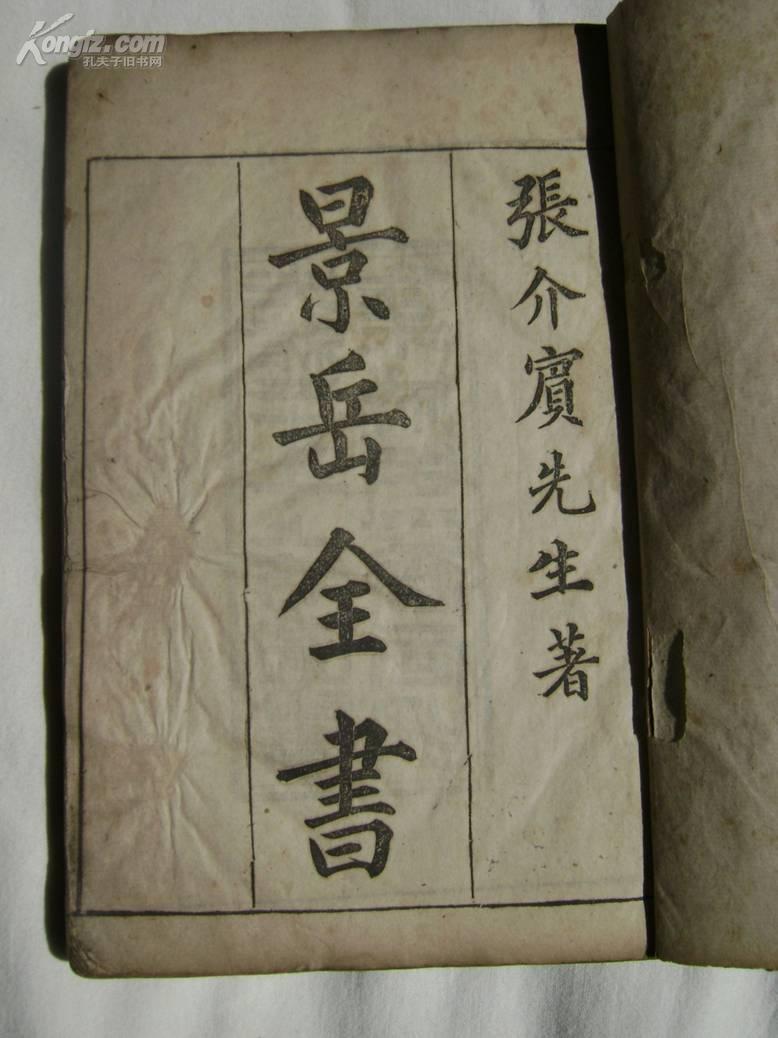 Kongfz.com
孔夫子旧书网
張介賓先生著
景岳全書